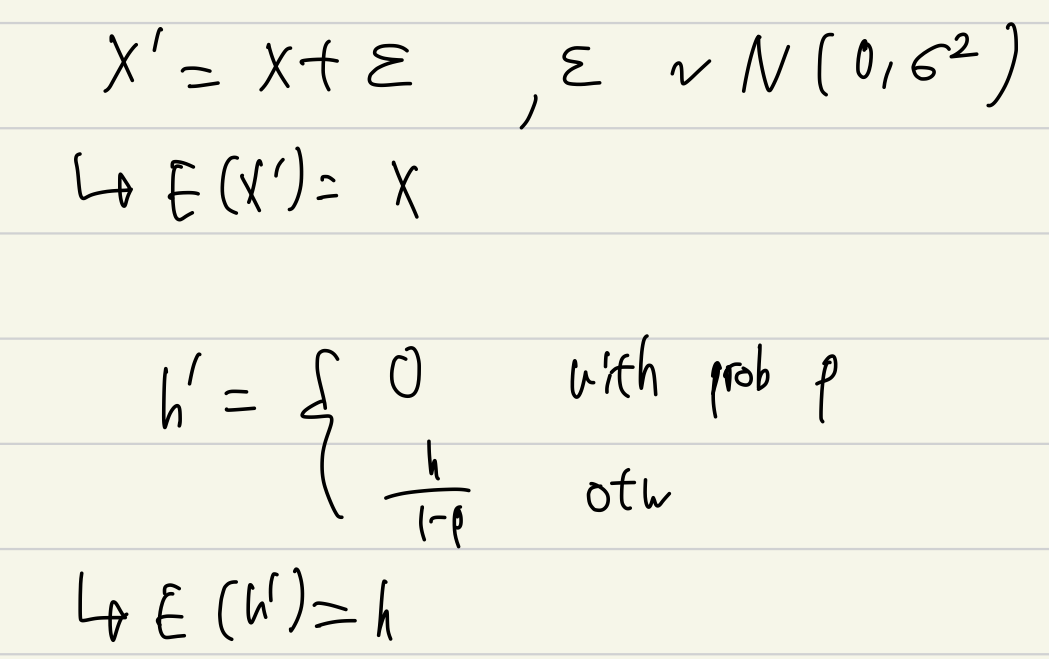 X' = X + ε , ε ~ N(0, σ²)
↳ E(X') = X
h' = { 0 with prob p
h/(1-p) otw
↳ E(h') = h